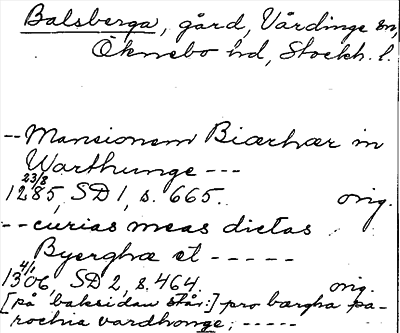 Balsberga, gård, Vårdinge sn,
Öknebo hd, Stockh. l.
--Mansionem Biærhær in
Warthunge ---
23/8
1285, SD 1, s. 665. orig.
--curias meas dictas
Byerghæ et -----
4/1
1306, SD 2, s. 464. orig.
[på baksidan står:] pro bærgha pa-
rochia vardhonge; -----